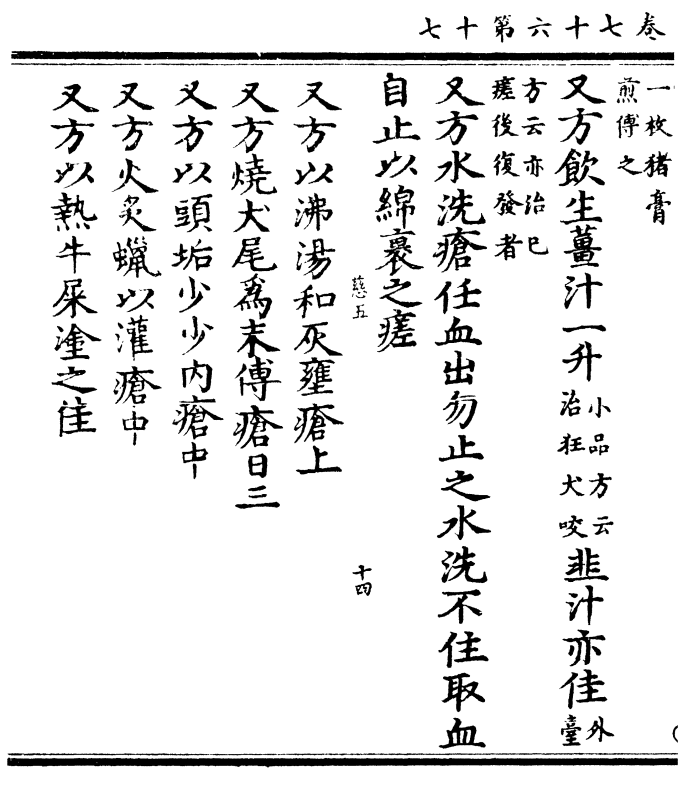 卷七十六第十七
一枚猪膏
煎傅之
又方飲生薑汁一升小品方云治狂犬咬韭汁亦佳外臺
方云亦治已
瘥後復發者
又方水洗瘡任血出勿止之水洗不住取血
自止以綿裹之瘥
慈五
十四
又方以沸湯和灰壅瘡上
又方燒犬尾為末傅瘡日三
又方以頭垢少少内瘡中
又方火炙蠟以灌瘡中
又方以熱牛屎塗之佳